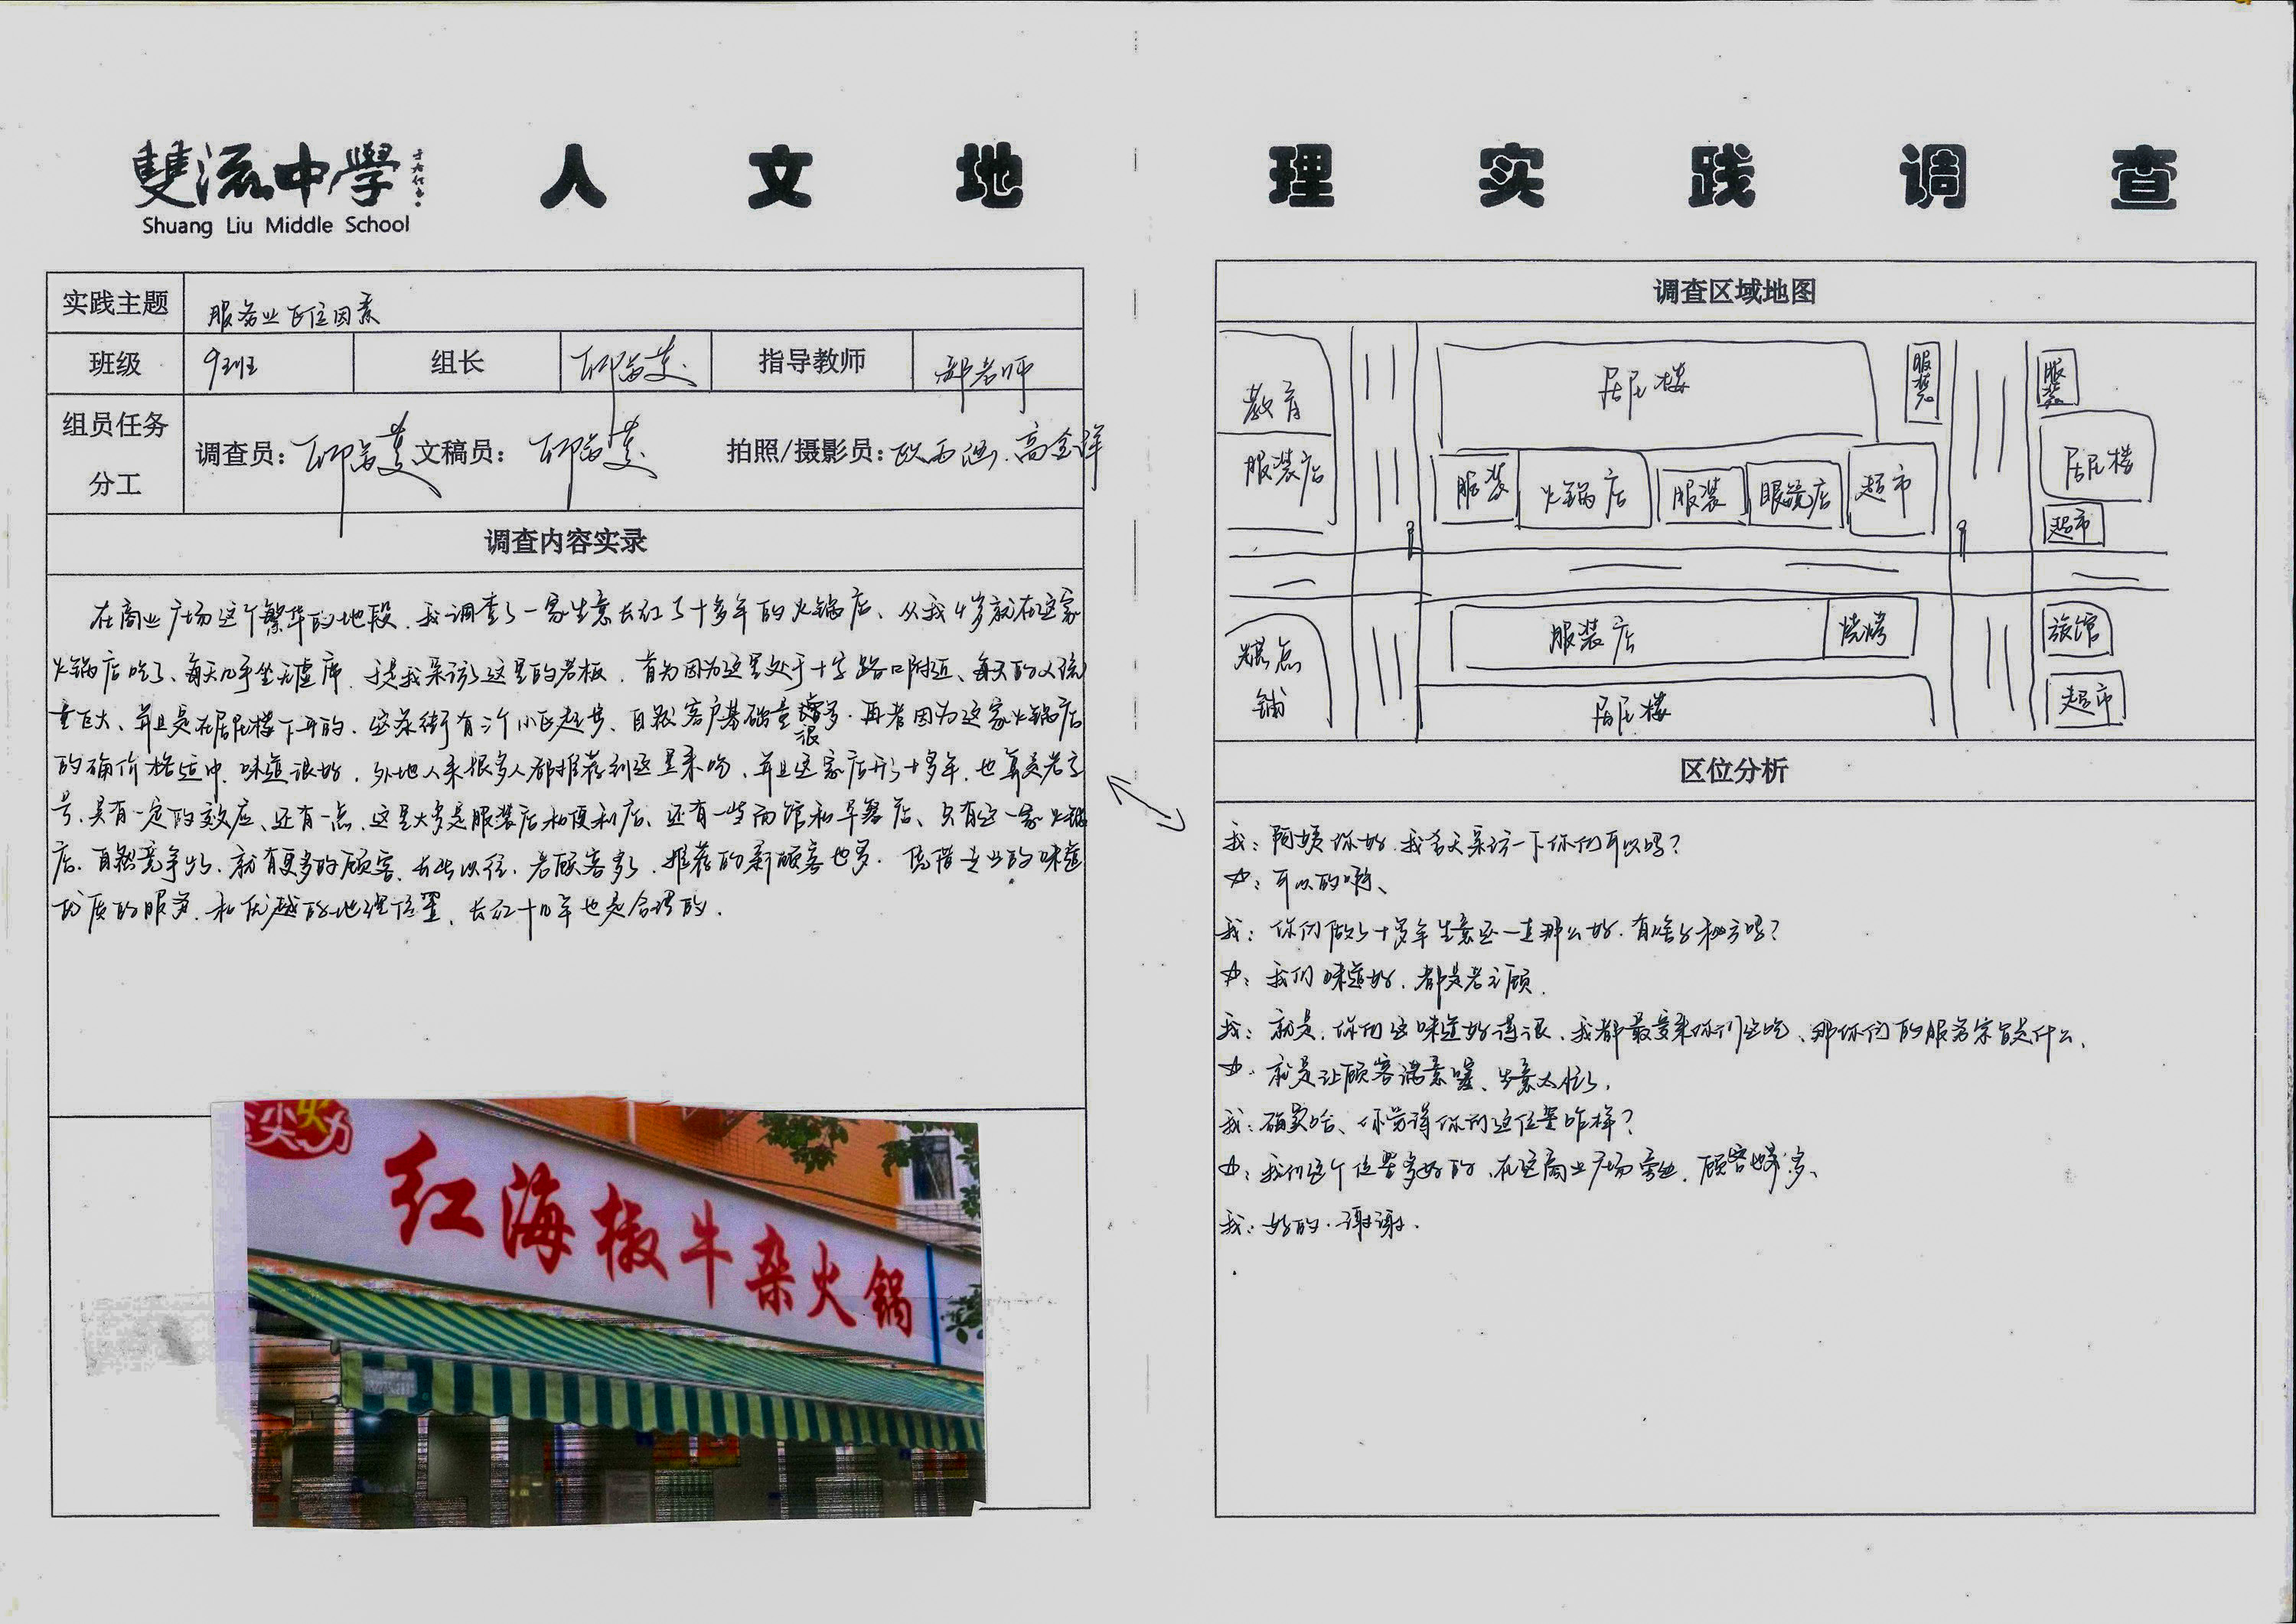 雙流中學
Shuang Liu Middle School
人文地理实践调查
实践主题 服务业区位因素
班级 9班 组长 指导教师 郑老师
组员任务分工 调查员： 文稿员： 拍照/摄影员： 高金洋
调查内容实录
在商业广场这个繁华的地段，我调查了一家生意长红了十多年的火锅店、从我4岁就在这家
火锅店吃了、每天几乎坐无虚席，于是我采访了这里的老板，首先因为这里处于十字路口附近、每天的人流
量巨大、并且是在居民楼下开的，这条街有三个小区起步，自然客户基础量很多．再者因为这家火锅店
的确价格适中，味道很好，外地人来很多人都推荐到这里来吃、并且这家店开了十多年，也算是老字
号、具有一定的效应、还有一点，这里大多是服装店和便利店、还有一些面馆和早餐店、只有这一家火锅
店．自然竞争少，就有更多的顾客，长此以往，老顾客多，推荐的新顾客也多．凭借专业的味道
优质的服务，和优越的地理位置，长红十几年也是合理的．
红海椒牛杂火锅
调查区域地图
教育
服装店
居民楼
服装
服装
服装
火锅店
服装
眼镜店
超市
居民楼
超市
糕点铺
服装店
烧烤
居民楼
旅馆
超市
区位分析
我：阿姨你好，我今天采访一下你们可以吗？
：可以的嘛、
我：你们做了十多年生意还一直那么好，有啥子秘方吗？
：我们味道好，都是老主顾．
我：就是，你们这味道好得很，我都最爱来你们这吃、那你们的服务宗旨是什么、
：就是让顾客满意噻、生意太忙了．
我：确实哈、你觉得你们这位置咋样？
：我们这个位置多好的，在这商业广场旁边，顾客也多、
我：好的．谢谢．